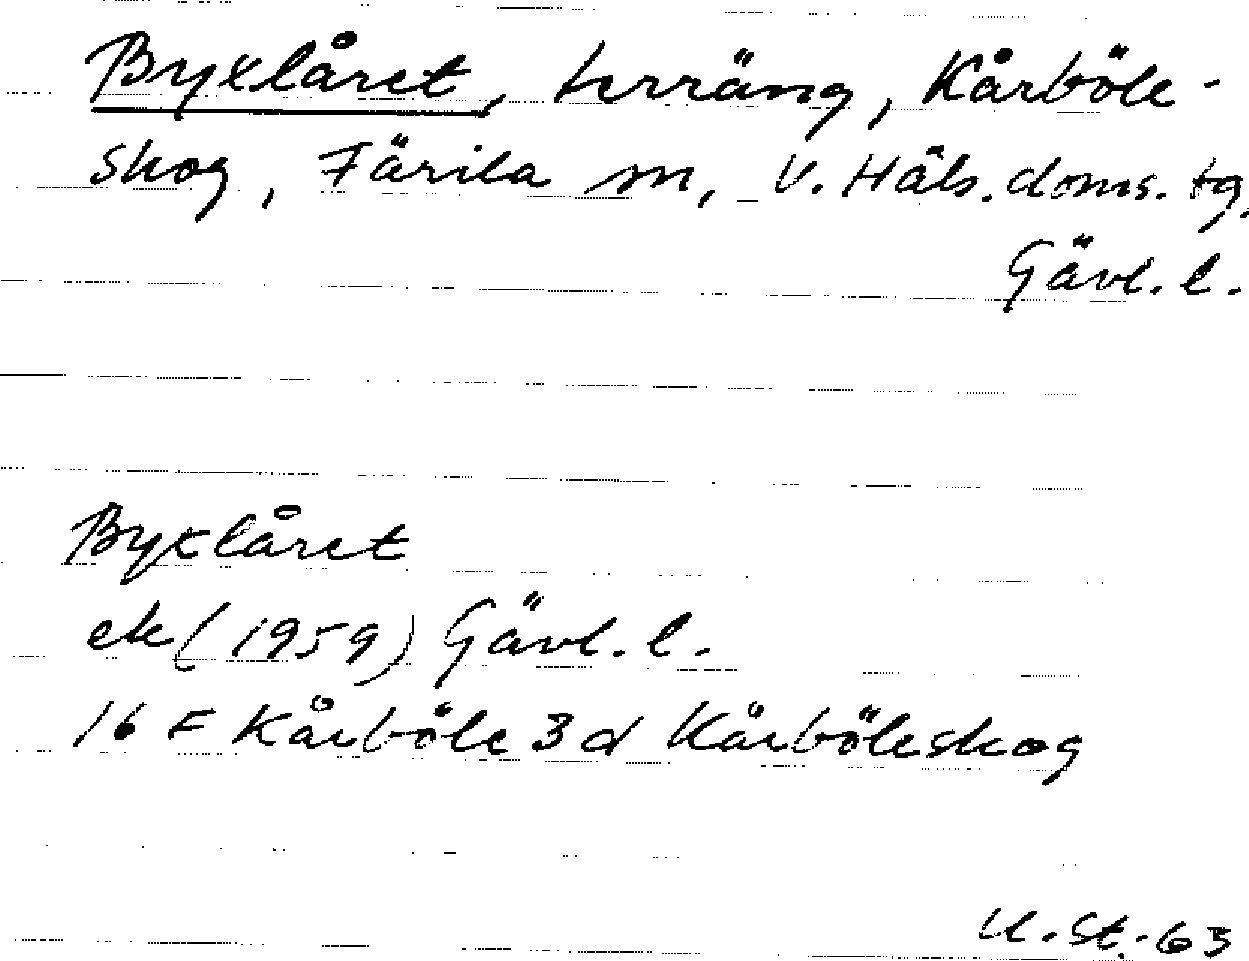 Byxlåret, terräng, Kårböle-
skog, Färila sn, V. Häls. doms. tg,
Gävl. l.
Byxlåret
ek (1959) Gävl. l.
16 F Kårböle 3 d Kårböleskog
U. St. -63